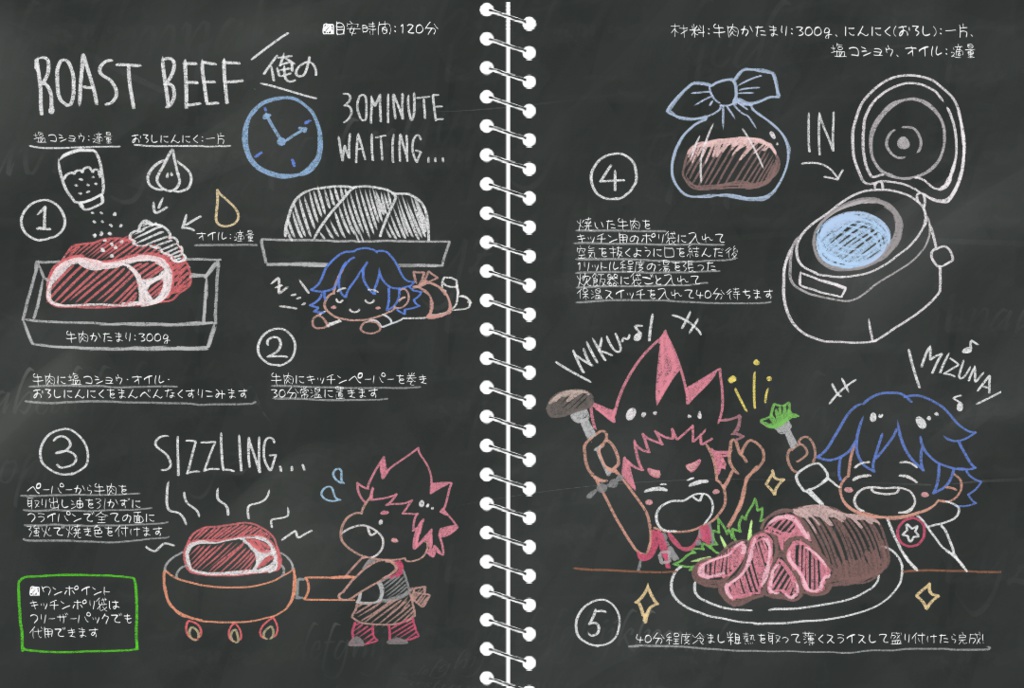 目安時間:120分
ROAST BEEF
俺の
塩コショウ:適量
おろしにんにく:一片
オイル:適量
①
牛肉かたまり:300g
牛肉に塩コショウ・オイル・
おろしにんにくをまんべんなくすりこみます
30MINUTE
WAITING...
②
牛肉にキッチンペーパーを巻き
30分常温に置きます
③
SIZZLING...
ペーパーから牛肉を
取り出し油を引かずに
フライパンで全ての面に
強火で焼き色を付けます
ワンポイント
キッチンポリ袋は
フリーザーパックでも
代用できます
材料:牛肉かたまり:300g、にんにく(おろし):一片、
塩コショウ、オイル:適量
IN
④
焼いた牛肉を
キッチン用のポリ袋に入れて
空気を抜くように口を結んだ後
1リットル程度の湯を張った
炊飯器に袋ごと入れて
保温スイッチを入れて40分待ちます
NIKU~♪!
MIZUNA!
⑤
40分程度冷まし粗熱を取って薄くスライスして盛り付けたら完成!